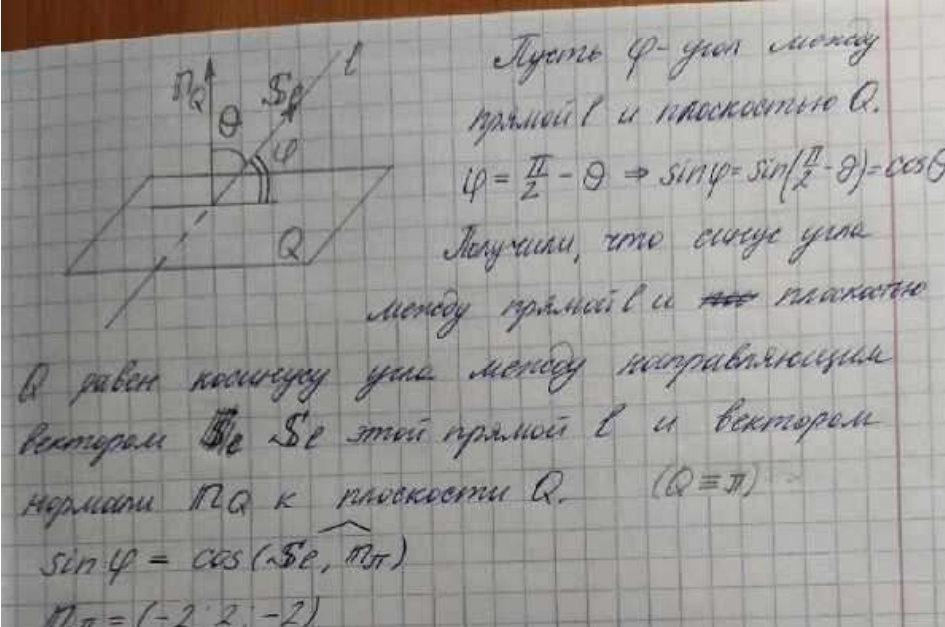 n_Q
θ
S_l
l
φ
Q
Пусть φ - угол между
прямой l и плоскостью Q.
φ = π/2 - θ ⇒ sinφ = sin(π/2 - θ) = cosθ
Получили, что синус угла
между прямой l и плоскостью
Q равен косинусу угла между направляющим
вектором S_l этой прямой l и вектором
нормали n_Q к плоскости Q. (Q ≡ π)
sin φ = cos(S_l, n_π)
n_π = (-2; 2; -2)